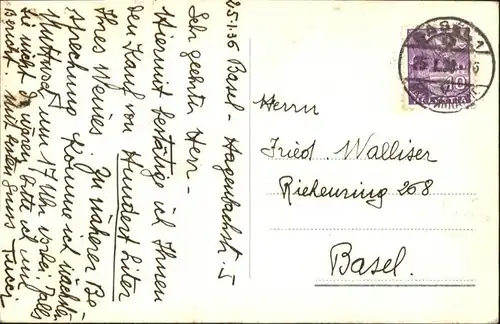 25.1.36 Basel - Hagenbachstr. 5
Sehr geehrter Herr -
Hiermit bestätige ich Ihnen
den Kauf von Hundert Liter
Ihres Weines. Zu näherer Be-
sprechung komme ich nächsten
Mittwoch um 17 Uhr vorbei. Falls
Sie nicht da wären bitte ich um
Bericht. Mit besten Gruss
Herrn
Fried. Walliser
Riehenring 208
Basel.
BASEL 1
10